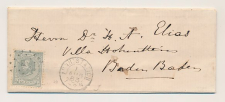 Herrn Dr. H. A. Elias
Villa Hohenstein
Baden Baden